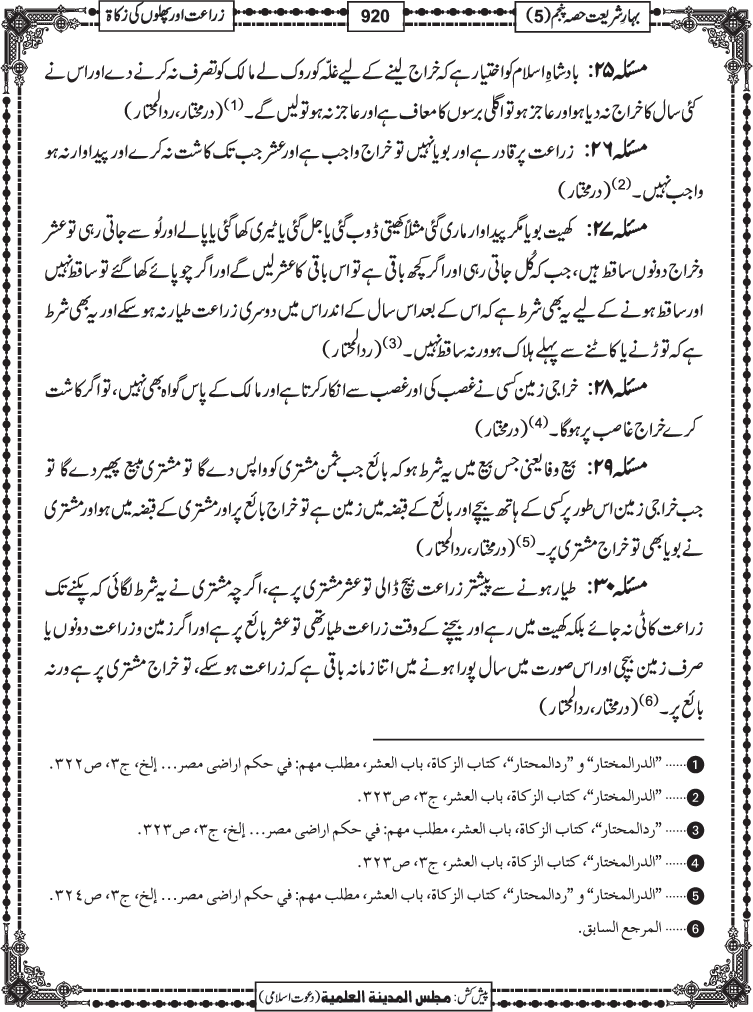 بہارِ شریعت حصہ پنجم (5)
920
زراعت اور پھلوں کی زکاۃ
مسئلہ ۲۵: بادشاہِ اسلام کو اختیار ہے کہ خراج لینے کے لیے غلّہ کو روک لے مالک کو تصرف نہ کرنے دے اور اس نے
کئی سال کا خراج نہ دیا ہو اور عاجز ہو تو اگلی برسوں کا معاف ہے اور عاجز نہ ہو تو لیں گے۔(1) (درمختار، ردالمحتار)
مسئلہ ۲۶: زراعت پر قادر ہے اور بویا نہیں تو خراج واجب ہے اور عشر جب تک کاشت نہ کرے اور پیداوار نہ ہو
واجب نہیں۔(2) (درمختار)
مسئلہ ۲۷: کھیت بویا مگر پیداوار ماری گئی مثلاً کھیتی ڈوب گئی یا جل گئی یا ٹیری کھا گئی یا پالے اور لُو سے جاتی رہی تو عشر
و خراج دونوں ساقط ہیں، جب کہ کُل جاتی رہی اور اگر کچھ باقی ہے تو اس باقی کا عشر لیں گے اور اگر چوپائے کھا گئے تو ساقط نہیں
اور ساقط ہونے کے لیے یہ بھی شرط ہے کہ اس کے بعد اس سال کے اندر اس میں دوسری زراعت طیار نہ ہو سکے اور یہ بھی شرط
ہے کہ توڑنے یا کاٹنے سے پہلے ہلاک ہو ورنہ ساقط نہیں۔(3) (ردالمحتار)
مسئلہ ۲۸: خراجی زمین کسی نے غصب کی اور غصب سے انکار کرتا ہے اور مالک کے پاس گواہ بھی نہیں، تو اگر کاشت
کرے خراج غاصب پر ہوگا۔(4) (درمختار)
مسئلہ ۲۹: بیع وفا یعنی جس بیع میں یہ شرط ہو کہ بائع جب ثمن مشتری کو واپس دے گا تو مشتری مبیع پھیر دے گا تو
جب خراجی زمین اس طور پر کسی کے ہاتھ بیچے اور بائع کے قبضہ میں زمین ہے تو خراج بائع پر اور مشتری کے قبضہ میں ہو اور مشتری
نے بویا بھی تو خراج مشتری پر۔(5) (درمختار، ردالمحتار)
مسئلہ ۳۰: طیار ہونے سے پیشتر زراعت بیچ ڈالی تو عشر مشتری پر ہے، اگرچہ مشتری نے یہ شرط لگائی کہ پکنے تک
زراعت کاٹی نہ جائے بلکہ کھیت میں رہے اور بیچنے کے وقت زراعت طیار تھی تو عشر بائع پر ہے اور اگر زمین و زراعت دونوں یا
صرف زمین بیچی اور اس صورت میں سال پورا ہونے میں اتنا زمانہ باقی ہے کہ زراعت ہو سکے، تو خراج مشتری پر ہے ورنہ
بائع پر۔(6) (درمختار، ردالمحتار)
1 ...... "الدرالمختار" و "ردالمحتار"، کتاب الزکاة، باب العشر، مطلب مهم: في حکم اراضی مصر... إلخ، ج٣، ص٣٢٢.
2 ...... "الدرالمختار"، کتاب الزکاة، باب العشر، ج٣، ص٣٢٣.
3 ...... "ردالمحتار"، کتاب الزکاة، باب العشر، مطلب مهم: في حکم اراضی مصر... إلخ، ج٣، ص٣٢٣.
4 ...... "الدرالمختار"، کتاب الزکاة، باب العشر، ج٣، ص٣٢٣.
5 ...... "الدرالمختار" و "ردالمحتار"، کتاب الزکاة، باب العشر، مطلب مهم: في حکم اراضی مصر... إلخ، ج٣، ص٣٢٤.
6 ...... المرجع السابق.
پیش کش: مجلس المدینة العلمیة (دعوت اسلامی)